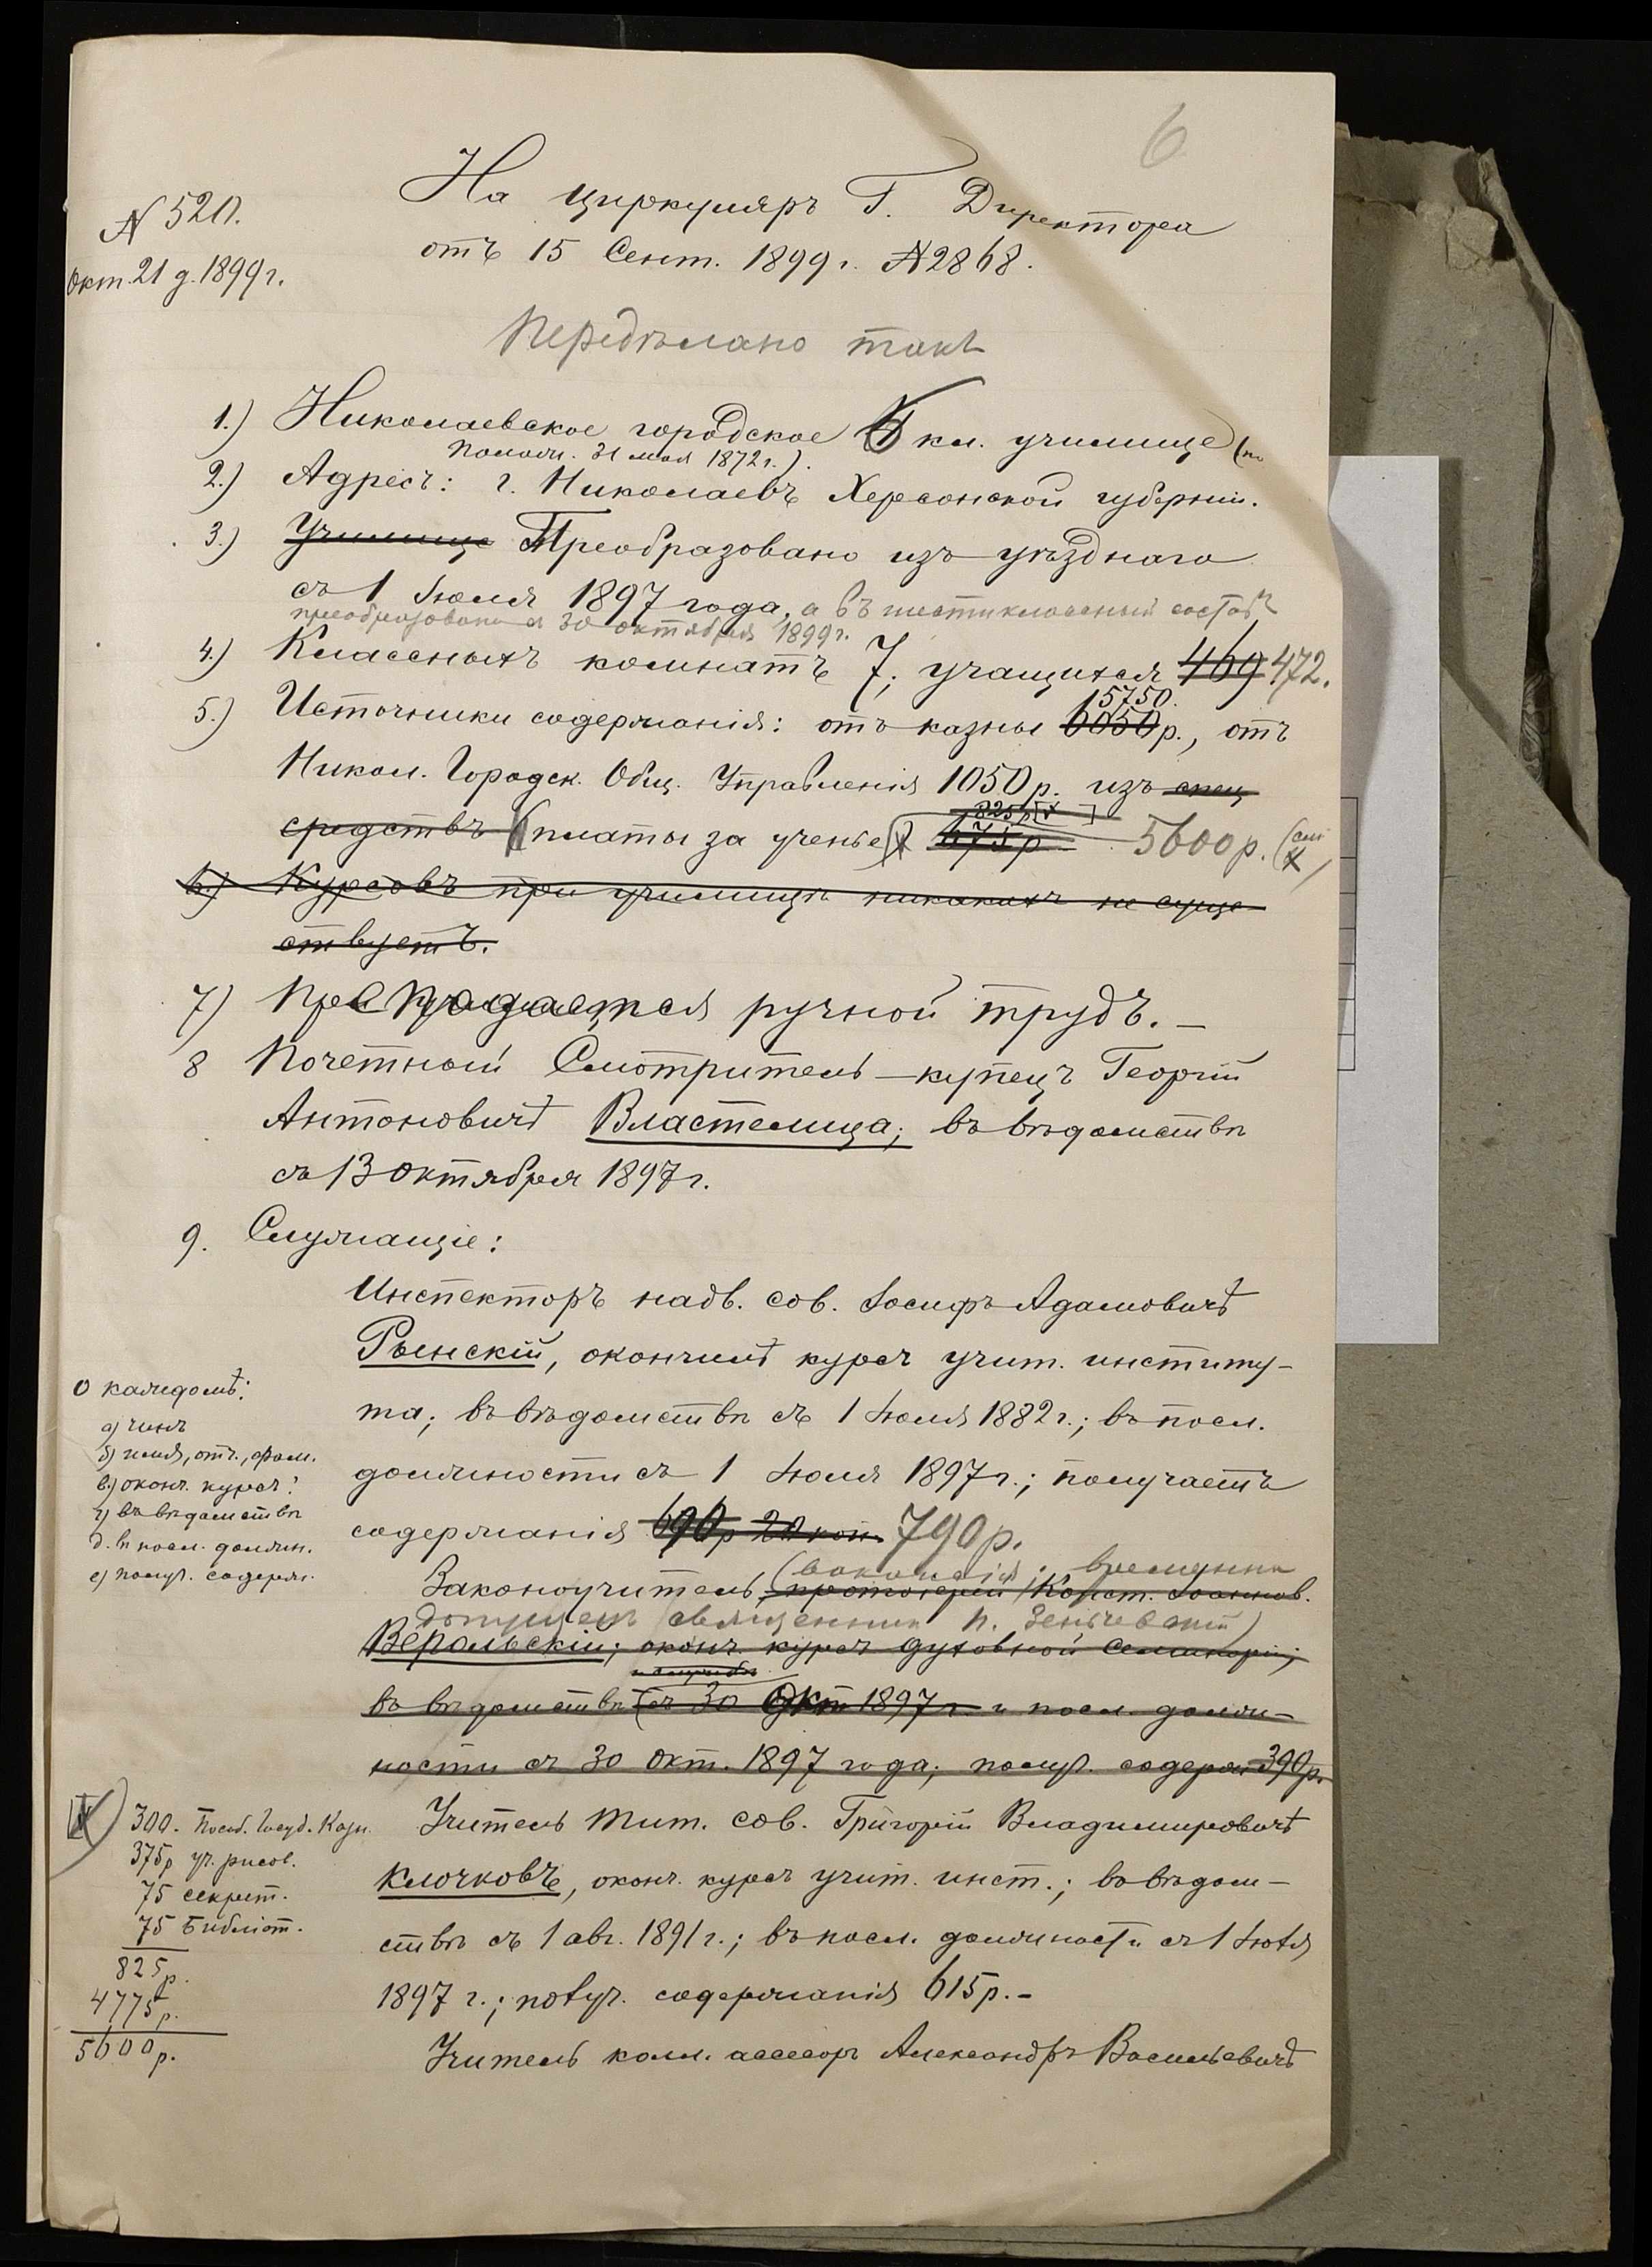 6
№ 520.
Окт. 21 д. 1899 г.
На циркуляръ Г. Директора
отъ 15 Сент. 1899 г. № 2868.
Передѣлано такъ
1.) Николаевское городское кл. училище (по
Полож. 31 мая 1872 г.).
2.) Адресъ: г. Николаевъ Херсонской губерніи.
3.) Училище Преобразовано изъ уѣзднаго
съ 1 Іюля 1897 года, а въ шестиклассный составъ
преобразовано съ 30 октября 1899 г.
4.) Классныхъ комнатъ 7; учащихся 469 472.
5750.
5.) Источники содержанія: отъ казны 6050 р., отъ
Никол. Городск. Общ. Управленія 1050 р. изъ спец
825 р. [х]
средствъ (платы за ученье) 675 р 5600 р. (см х)
6.) Курсовъ при училищѣ никакихъ не суще-
ствуетъ.
7) Преподается ручной трудъ. –
8 Почетный Смотритель – купецъ Георгій
Антоновичъ Властелица; въ вѣдомствѣ
съ 13 октября 1897 г.
9. Служащіе:
Инспекторъ надв. сов. Іосифъ Адамовичъ
Рынскій, окончилъ курсъ учит. институ-
та; въ вѣдомствѣ съ 1 Іюля 1882 г.; въ посл.
должности съ 1 Іюля 1897 г.; получаетъ
содержанія 690 р 20 коп. 790 р.
(вакансія; временно
Законоучитель, протоіерей Конст. Іоаннов.
допущенъ священникъ П. Зеньчевскій)
Верольскій; оконч. курсъ духовной Семинаріи;
въ вѣдомствѣ (съ 30 Окт 1897 г. и посл. долж-
ности съ 30 Окт. 1897 года; получ. содерж. 390 р.
Учитель тит. сов. Григорій Владимировичъ
Клочковъ, оконч. курсъ учит. инст.; въ вѣдом-
ствѣ съ 1 авг. 1891 г.; въ посл. должности съ 1 Іюля
1897 г.; получ. содержанія 615 р. –
Учитель колл. ассесоръ Александръ Васильевичъ
О каждомъ:
а) чинъ
б) имя, отч., фам.
в.) оконч. курсъ?
г) въ вѣдомствѣ
д. въ посл. должн.
е) получ. содерж.
х) 300. Пособ. Госуд. Казн.
375 р уч. рисов.
75 секрет.
75 Библіот.
825 р.
4775 р.
5600 р.